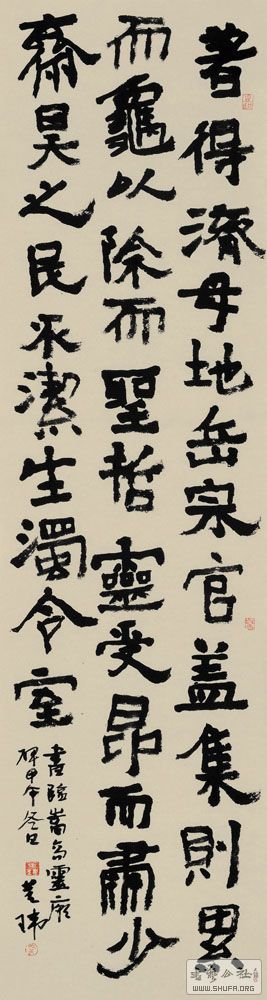 著得濟母地岳宗官盖集則異
而龜以除而聖哲靈受昂而肅少
齋昊之民承潔生濁令室
書臨嵩高靈廟
碑甲午冬日 瑋
WWW.SHUFA.ORG